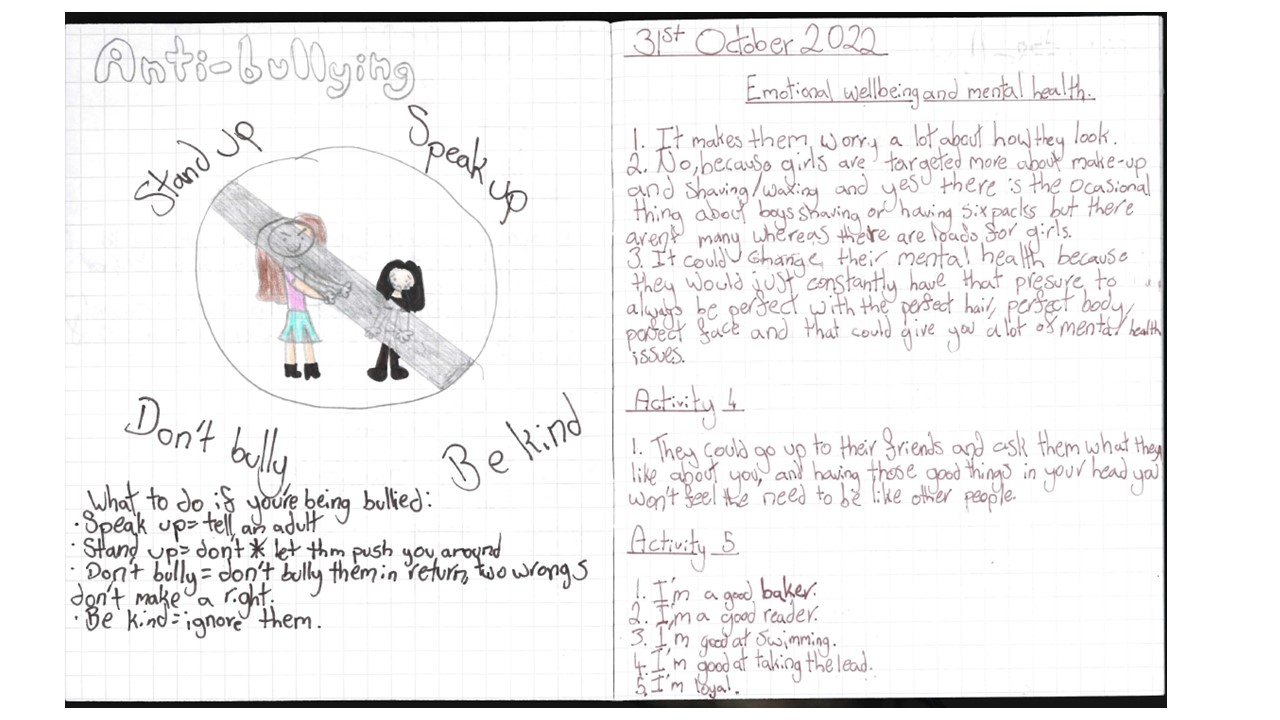 Anti-bullying
Stand up
Speak up
Don't bully
Be kind
What to do if you're being bullied:
· Speak up = tell an adult
· Stand up = don't * let thm push you around
· Don't bully = don't bully them in return, two wrongs
don't make a right.
· Be kind = ignore them.
31st October 2022
Emotional wellbeing and mental health.
1. It makes them worry a lot about how they look.
2. No, because girls are targeted more about make-up
and shaving/waxing and yes there is the ocasional
thing about boys shaving or having six packs but there
arent many whereas there are loads for girls.
3. It could change their mental health because
they would just constantly have that presure to
always be perfect with the perfect hair, perfect body,
perfect face and that could give you a lot of mental health
issues.
Activity 4
1. They could go up to their friends and ask them what they
like about you, and having those good things in your head you
won't feel the need to be like other people.
Activity 5
1. I'm a good baker.
2. I'm a good reader.
3. I'm good at swimming.
4. I'm good at taking the lead.
5. I'm loyal.